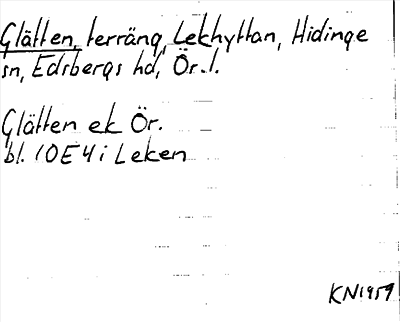 Glätten, terräng, Lekhyttan, Hidinge
sn, Edsbergs hd, Ör.l.
Glätten ek Ör.
bl. 10E4i Leken
KN1959